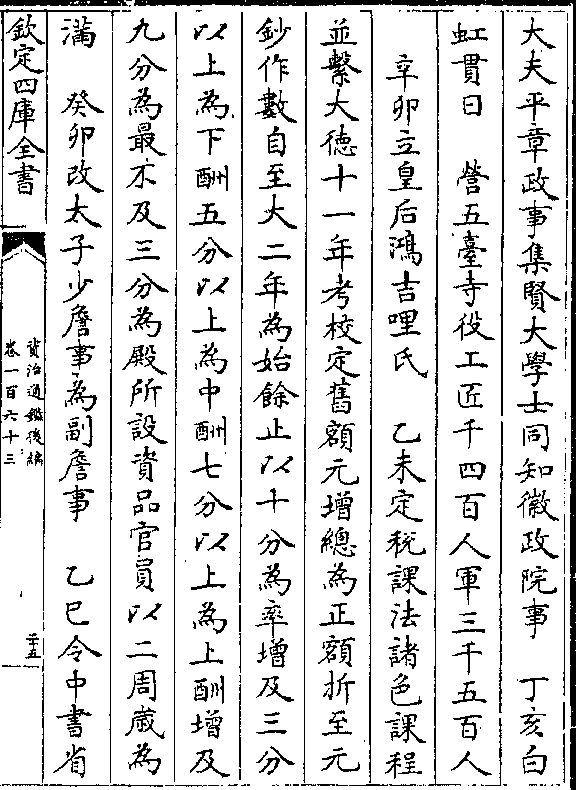 大夫平章政事集賢大學士同知徽政院事　丁亥白
虹貫日　營五臺寺役工匠千四百人軍三千五百人
辛卯立皇后鴻吉哩氏　乙未定稅課法諸色課程
並繫大德十一年考校定舊額元增總為正額折至元
鈔作數自至大二年為始餘止以十分為率增及三分
以上為下酬五分以上為中酬七分以上為上酬增及
九分為最不及三分為殿所設資品官員以二周歲為
滿　癸卯改太子少詹事為副詹事　乙巳令中書省
欽定四庫全書
資治通鑑後編
卷一百六十三
二十五